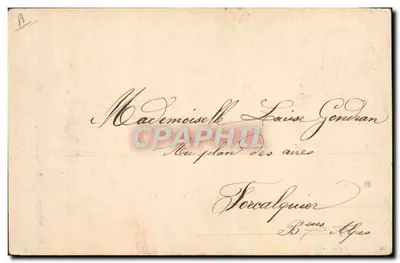 A
Mademoiselle Louise Gondran
CPAPHTI
Au plan des aires
Forcalquier
Bsses Alpes